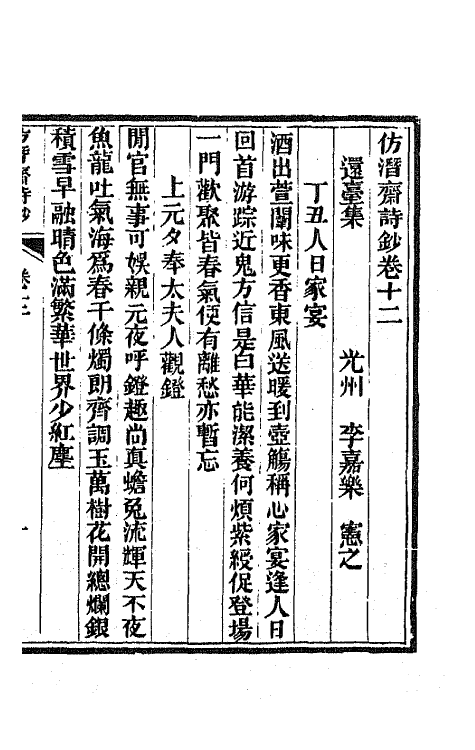 仿潛齋詩鈔卷十二
還臺集 光州 李嘉樂 憲之
丁丑人日家宴
酒出萱闈味更香東風送暖到壺觴稱心家宴逢人日
回首游踪近鬼方信是白華能潔養何煩紫綬促登場
一門歡聚皆春氣便有離愁亦暫忘
上元夕奉太夫人觀鐙
閒官無事可娛親元夜呼鐙趣尚真蟾兔流輝天不夜
魚龍吐氣海爲春千條燭朗齊調玉萬樹花開總爛銀
積雪早融晴色滿繁華世界少紅塵
仿潛齋詩鈔 卷十二 一